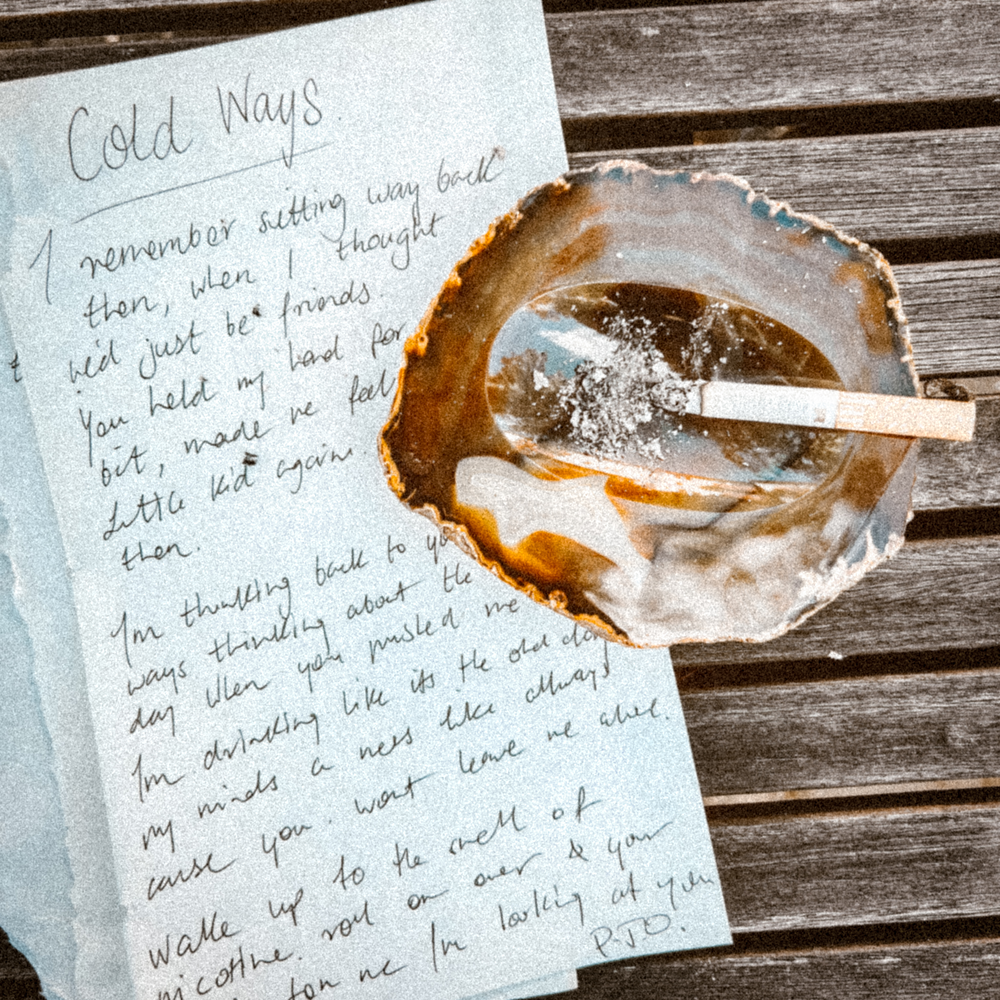 Cold Ways.
I remember sitting way back
then, when I thought
we'd just be friends.
You held my hand for
bit, made me feel
little kid again
then.
I'm thinking back to
ways thinking about the
day when you pushed me
I'm drinking like its the old day
my minds a mess like always
cause you. wont leave me alone.
Walke up to the smell of
nicotine. roll on over & your
on me I'm looking at you
P.T.O.